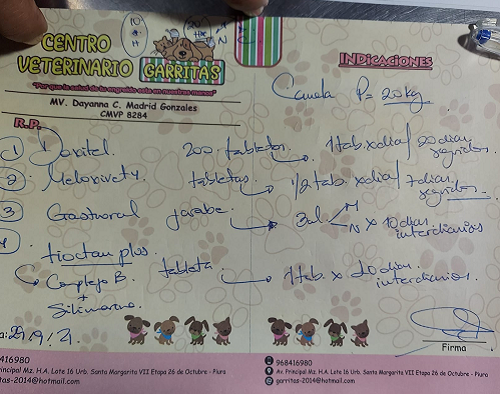 CENTRO
VETERINARIO GARRITAS
"Por que la salud de tu engreido esta en nuestras manos"
MV. Dayanna C. Madrid Gonzales
CMVP 8284
INDICACIONES
Canela P= 20kg
R.P.
1 Doxitel. 200 tabletas. 1 tab. x dia/ 20 dias seguidos.
2. Meloxivet 4 tabletas 1/2 tab. x dia/ 7 dias seguidos.
3 Gastroral jarabe. 3ml M N x 10 dias interdiarios
tioctan plus.
Complejo B. tableta 1 tab. x 20 dias. interdiarios.
+
Silimarina.
a: 29/9/21
Firma
416980
incipal Mz. H.A. Lote 16 Urb. Santa Margarita VII Etapa 26 de Octubre - Piura
tas-2014@hotmail.com
968416980
Av. Principal Mz. H.A. Lote 16 Urb. Santa Margarita VII Etapa 26 de Octubre - Piura
garritas-2014@hotmail.com